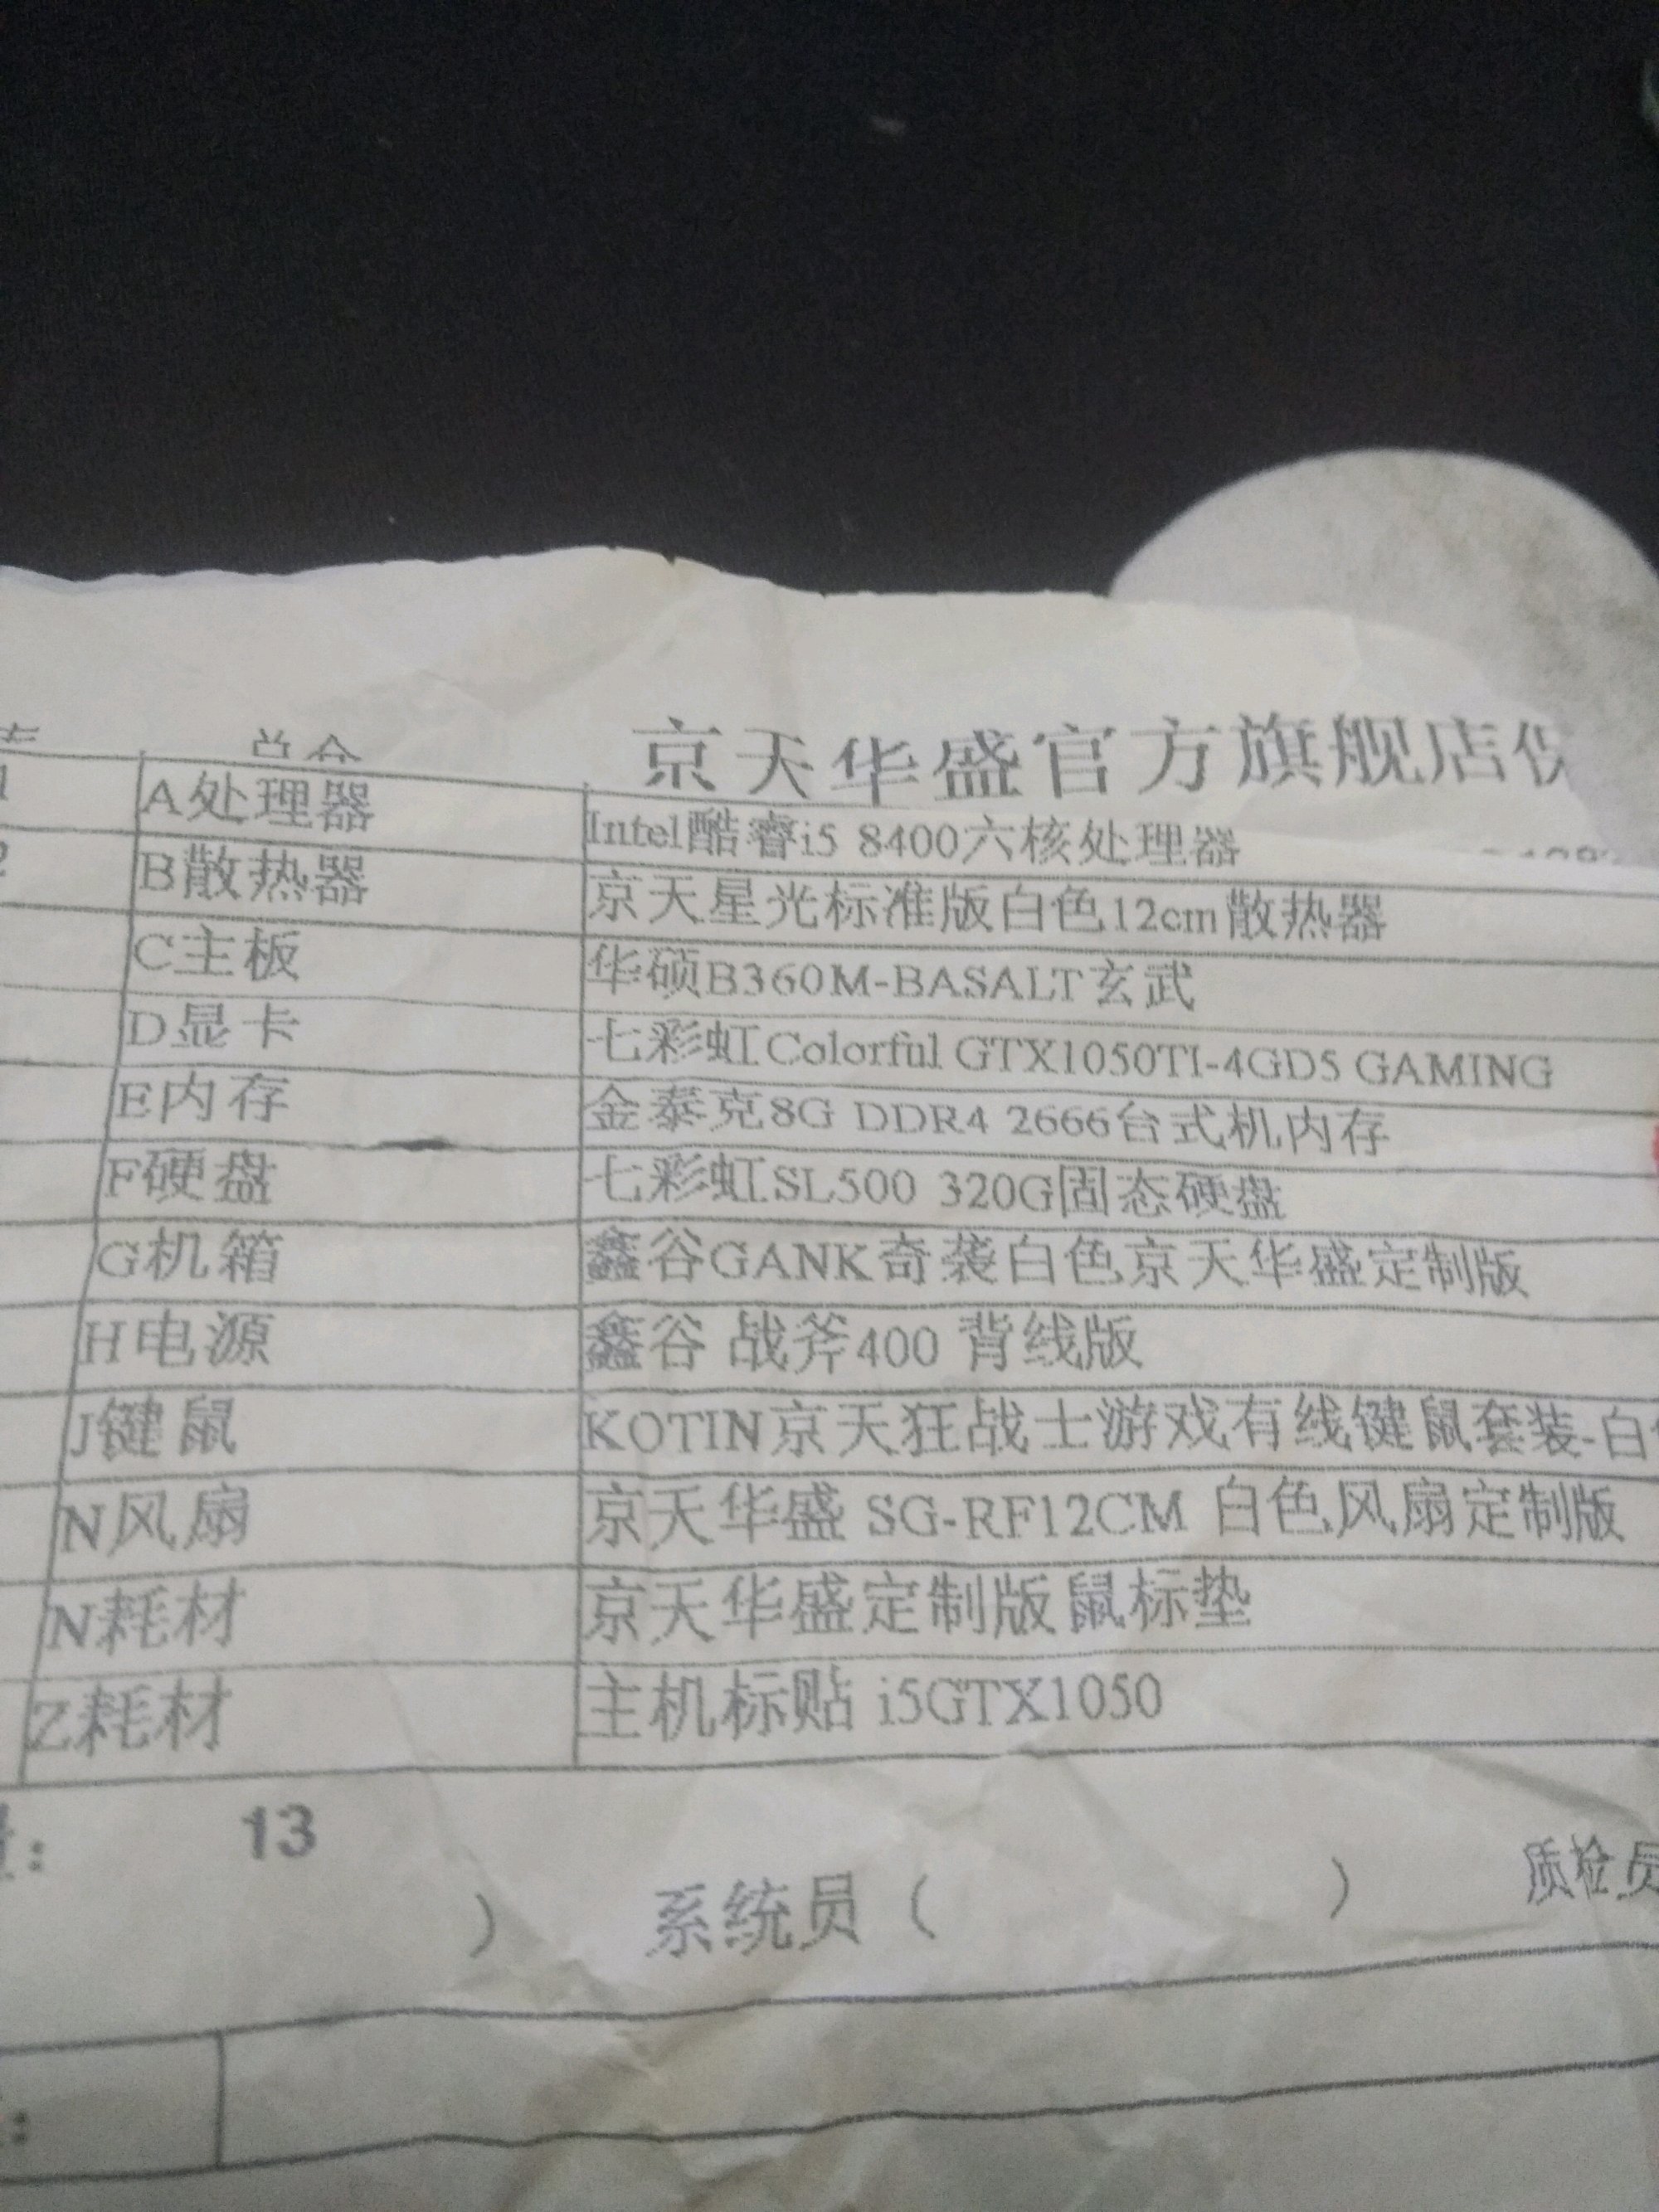 京天华盛官方旗舰店
A处理器 Intel酷睿i5 8400六核处理器
B散热器 京天星光标准版白色12cm散热器
C主板 华硕B360M-BASALT玄武
D显卡 七彩虹Colorful GTX1050TI-4GD5 GAMING
E内存 金泰克8G DDR4 2666台式机内存
F硬盘 七彩虹SL500 320G固态硬盘
G机箱 鑫谷GANK奇袭白色京天华盛定制版
H电源 鑫谷 战斧400 背线版
J键鼠 KOTIN京天狂战士游戏有线键鼠套装-白
N风扇 京天华盛 SG-RF12CM 白色风扇定制版
N耗材 京天华盛定制版鼠标垫
Z耗材 主机标贴 i5GTX1050
: 13
) 系统员 ( ) 质检员
: